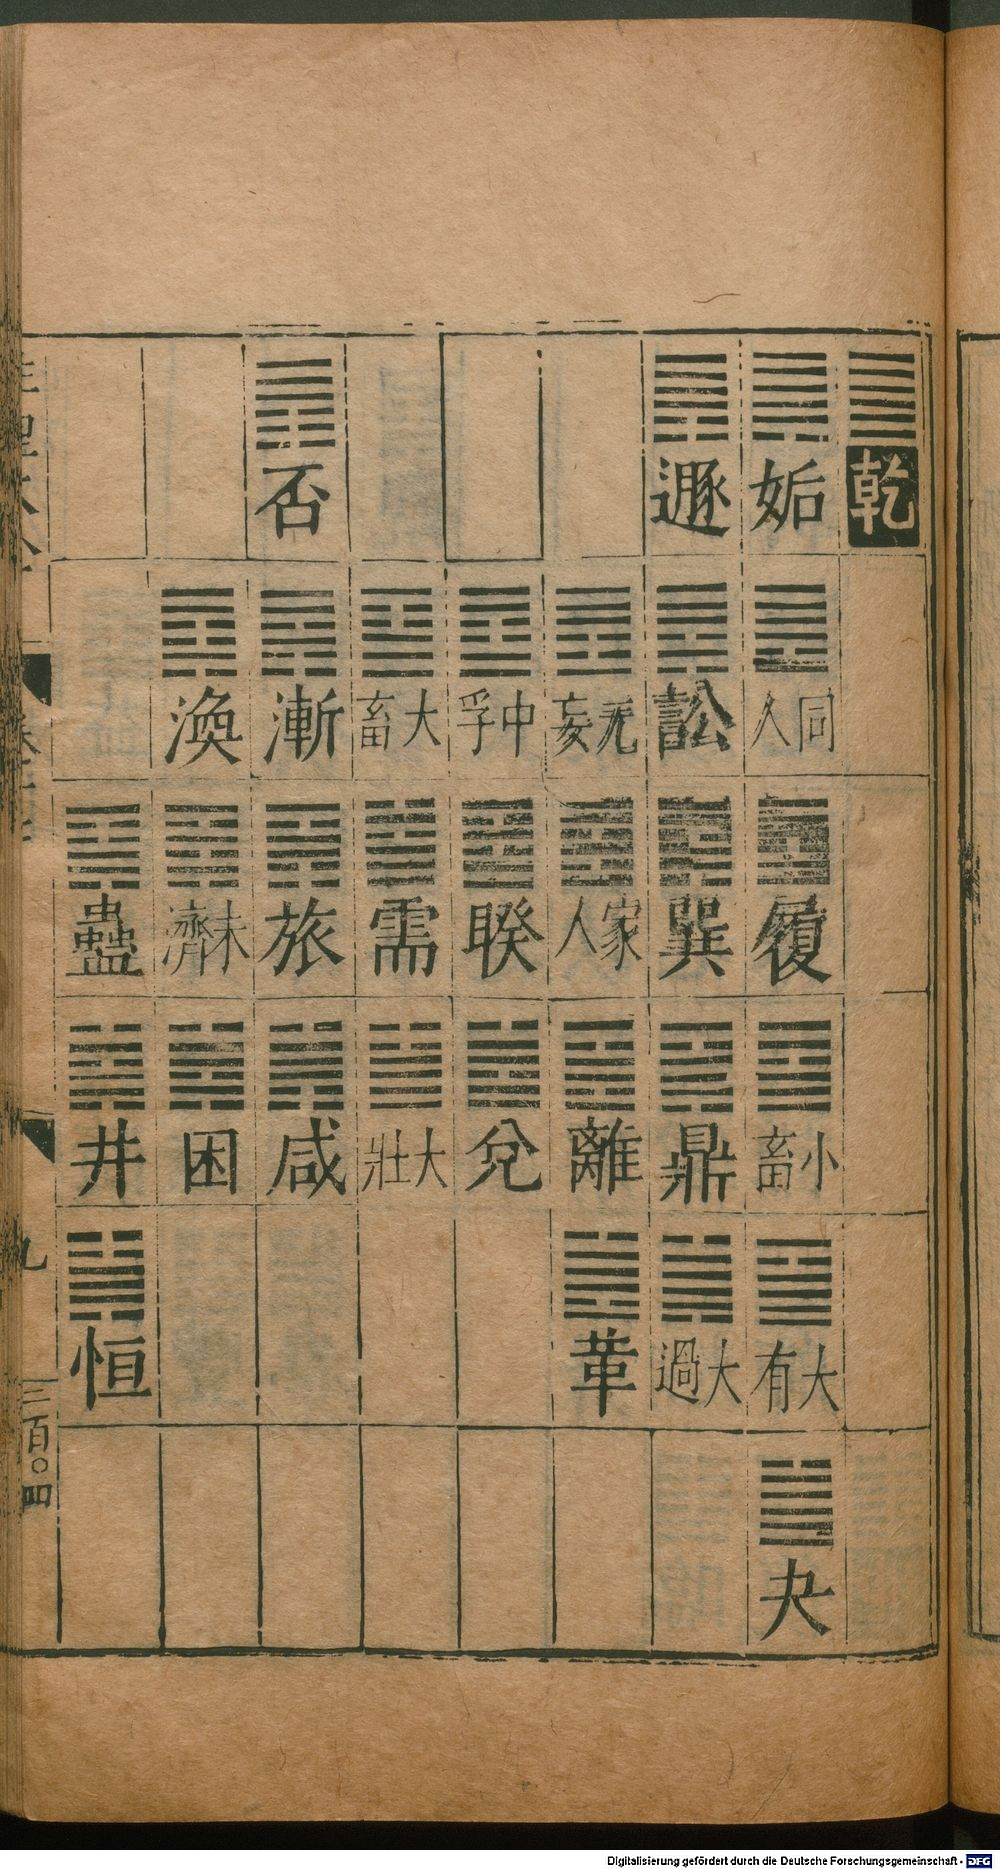 乾
姤
同人
履
小畜
大有
夬
遯
訟
巽
鼎
大過
无妄
家人
離
革
中孚
睽
兌
大畜
需
大壯
否
漸
旅
咸
渙
未濟
困
蠱
井
恒
九
三百〇四
Digitalisierung gefördert durch die Deutsche Forschungsgemeinschaft - DFG